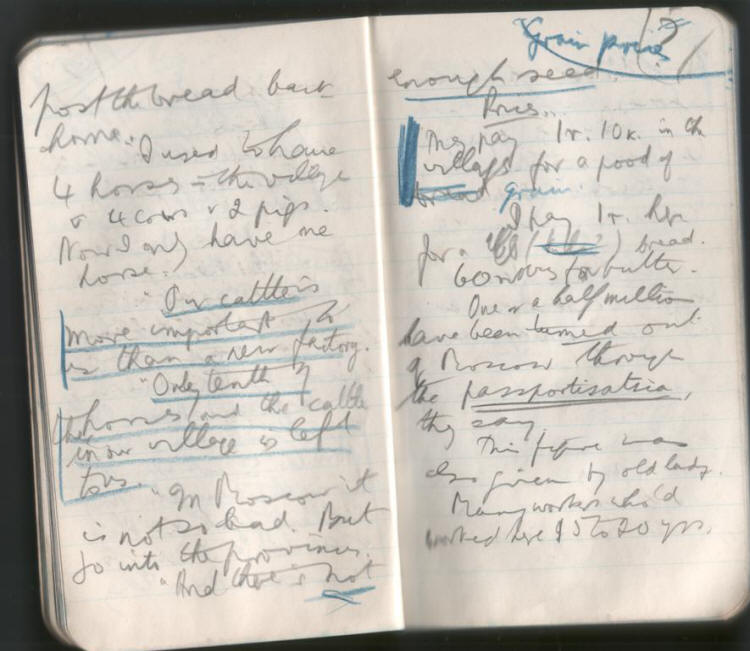 post the bread back
home.
"I used to have
4 horses in the village
& 4 cows & 2 pigs.
Now I only have one
horse."
"Our cattle is
more important to
us than a new factory.
"Only tenth of
the horses and the cattle
in our village is left
to us."
"In Moscow it
is not so bad. But
go into the provinces.
"And there is not
"Grain prices"
enough seed.
Prices..
They pay 1r. 10k. in the
village for a pood of
bread grain.
I pay 1r.
for a bread.
60 roubles for butter.
One & a half million
have been turned out
of Moscow through
the passportisatsia,
they say.
This figure was
also given by old lady.
Many workers who'd
worked here 15 to 20 yrs.